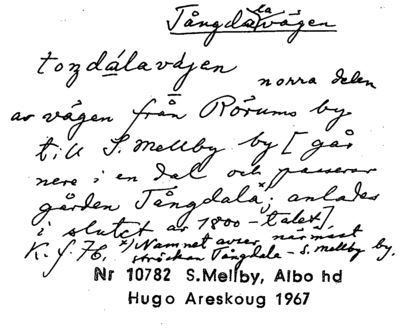 Tångdalavägen
tozdálavájen
norra delen
av vägen från Rörums by
till S. Mellby by [går
nere i en dal och passerar
gården Tångdala x); anlades
i slutet av 1800-talet]
K. J. 76. x) Namnet avser närmast
sträckan Tångdala - S. Mellby by.
Nr 10782 S.Mellby, Albo hd
Hugo Areskoug 1967